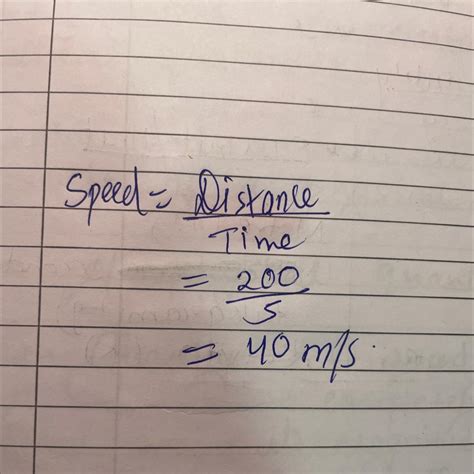 Speed = Distance
Time
= 200
5
= 40 m/s.